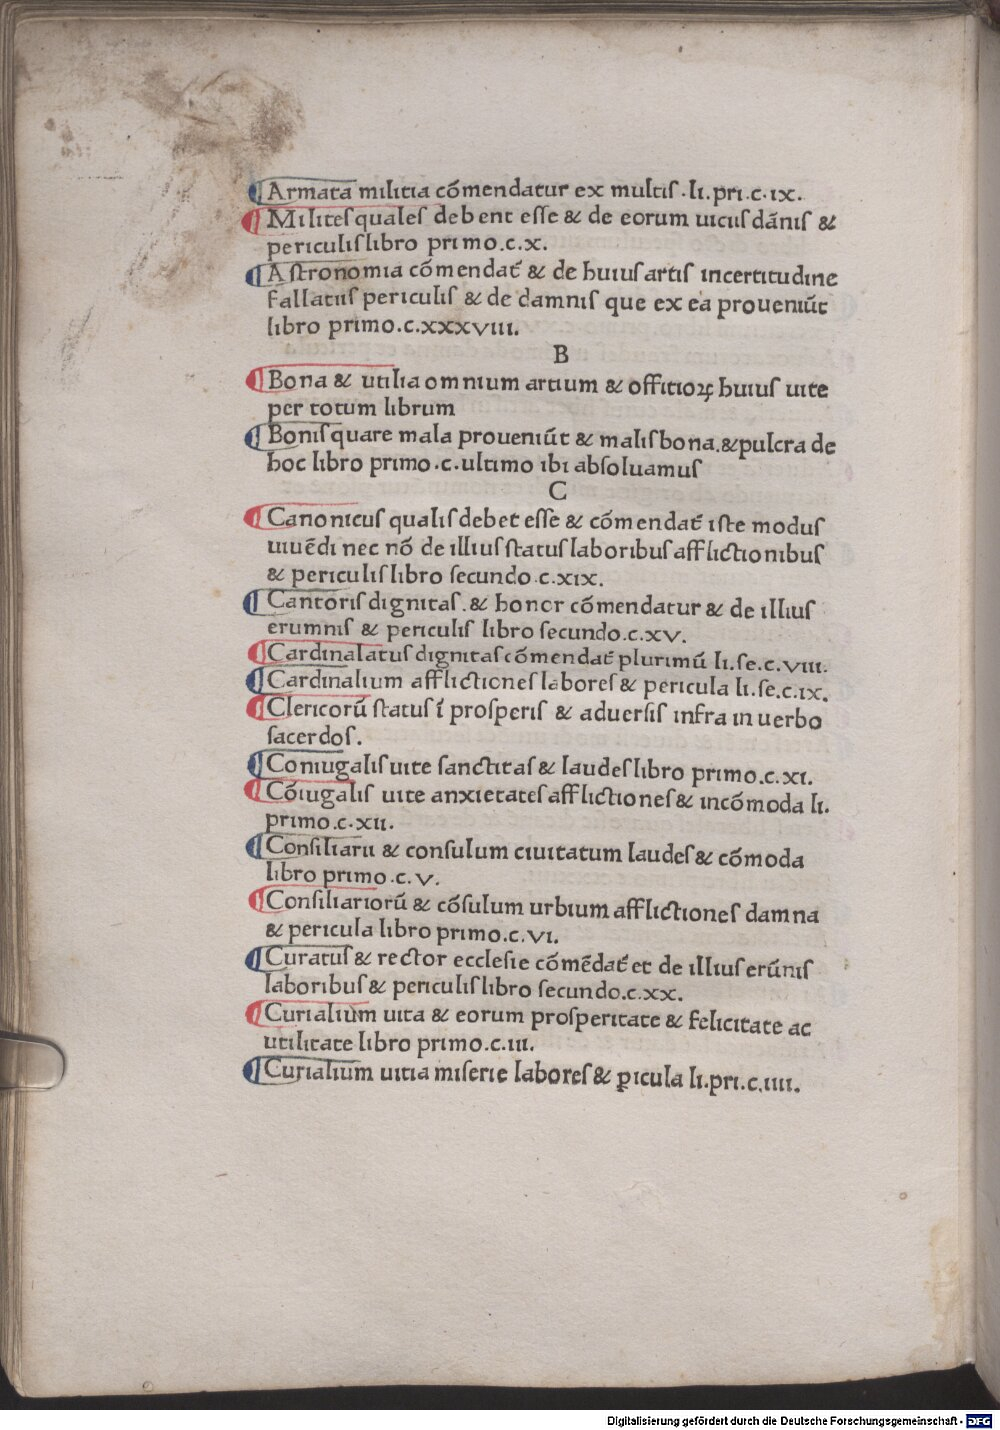 Armata militia cōmendatur ex multis.li.pri.c.ix.
Milites quales debent esse & de eorum uiciis dānis &
periculis libro primo.c.x.
Astronomia cōmendat̄ & de huius artis incertitudine
fallatiis periculis & de damnis que ex ea proueniūt
libro primo.c.xxxviii.
B
Bona & utilia omnium artium & offitioꝝ huius uite
per totum librum
Bonis quare mala proueniūt & malis bona.& pulcra de
hoc libro primo.c.ultimo ibi absoluamus
C
Canonicus qualis debet esse & cōmendat̄ iste modus
uiuēdi nec nō de illius status laboribus afflictionibus
& periculis libro secundo.c.xix.
Cantoris dignitas.& honor cōmendatur & de illius
erumnis & periculis libro secundo.c.xv.
Cardinalatus dignitas cōmendat̄ plurimū li.se.c.viii.
Cardinalium afflictiones labores & pericula li.se.c.ix.
Clericorū status ī prosperis & aduersis infra in uerbo
sacerdos.
Coniugalis uite sanctitas & laudes libro primo.c.xi.
Cōiugalis uite anxietates afflictiones & incōmoda li.
primo.c.xii.
Consiliarii & consulum ciuitatum laudes & cōmoda
libro primo.c.v.
Consiliariorū & cōsulum urbium afflictiones damna
& pericula libro primo.c.vi.
Curatus & rector ecclesie cōmēdat̄ et de illius erūnis
laboribus & periculis libro secundo.c.xx.
Curialium uita & eorum prosperitate & felicitate ac
utilitate libro primo.c.iii.
Curialium uitia miserie labores & ꝑicula li.pri.c.iiii.
Digitalisierung gefördert durch die Deutsche Forschungsgemeinschaft - DFG